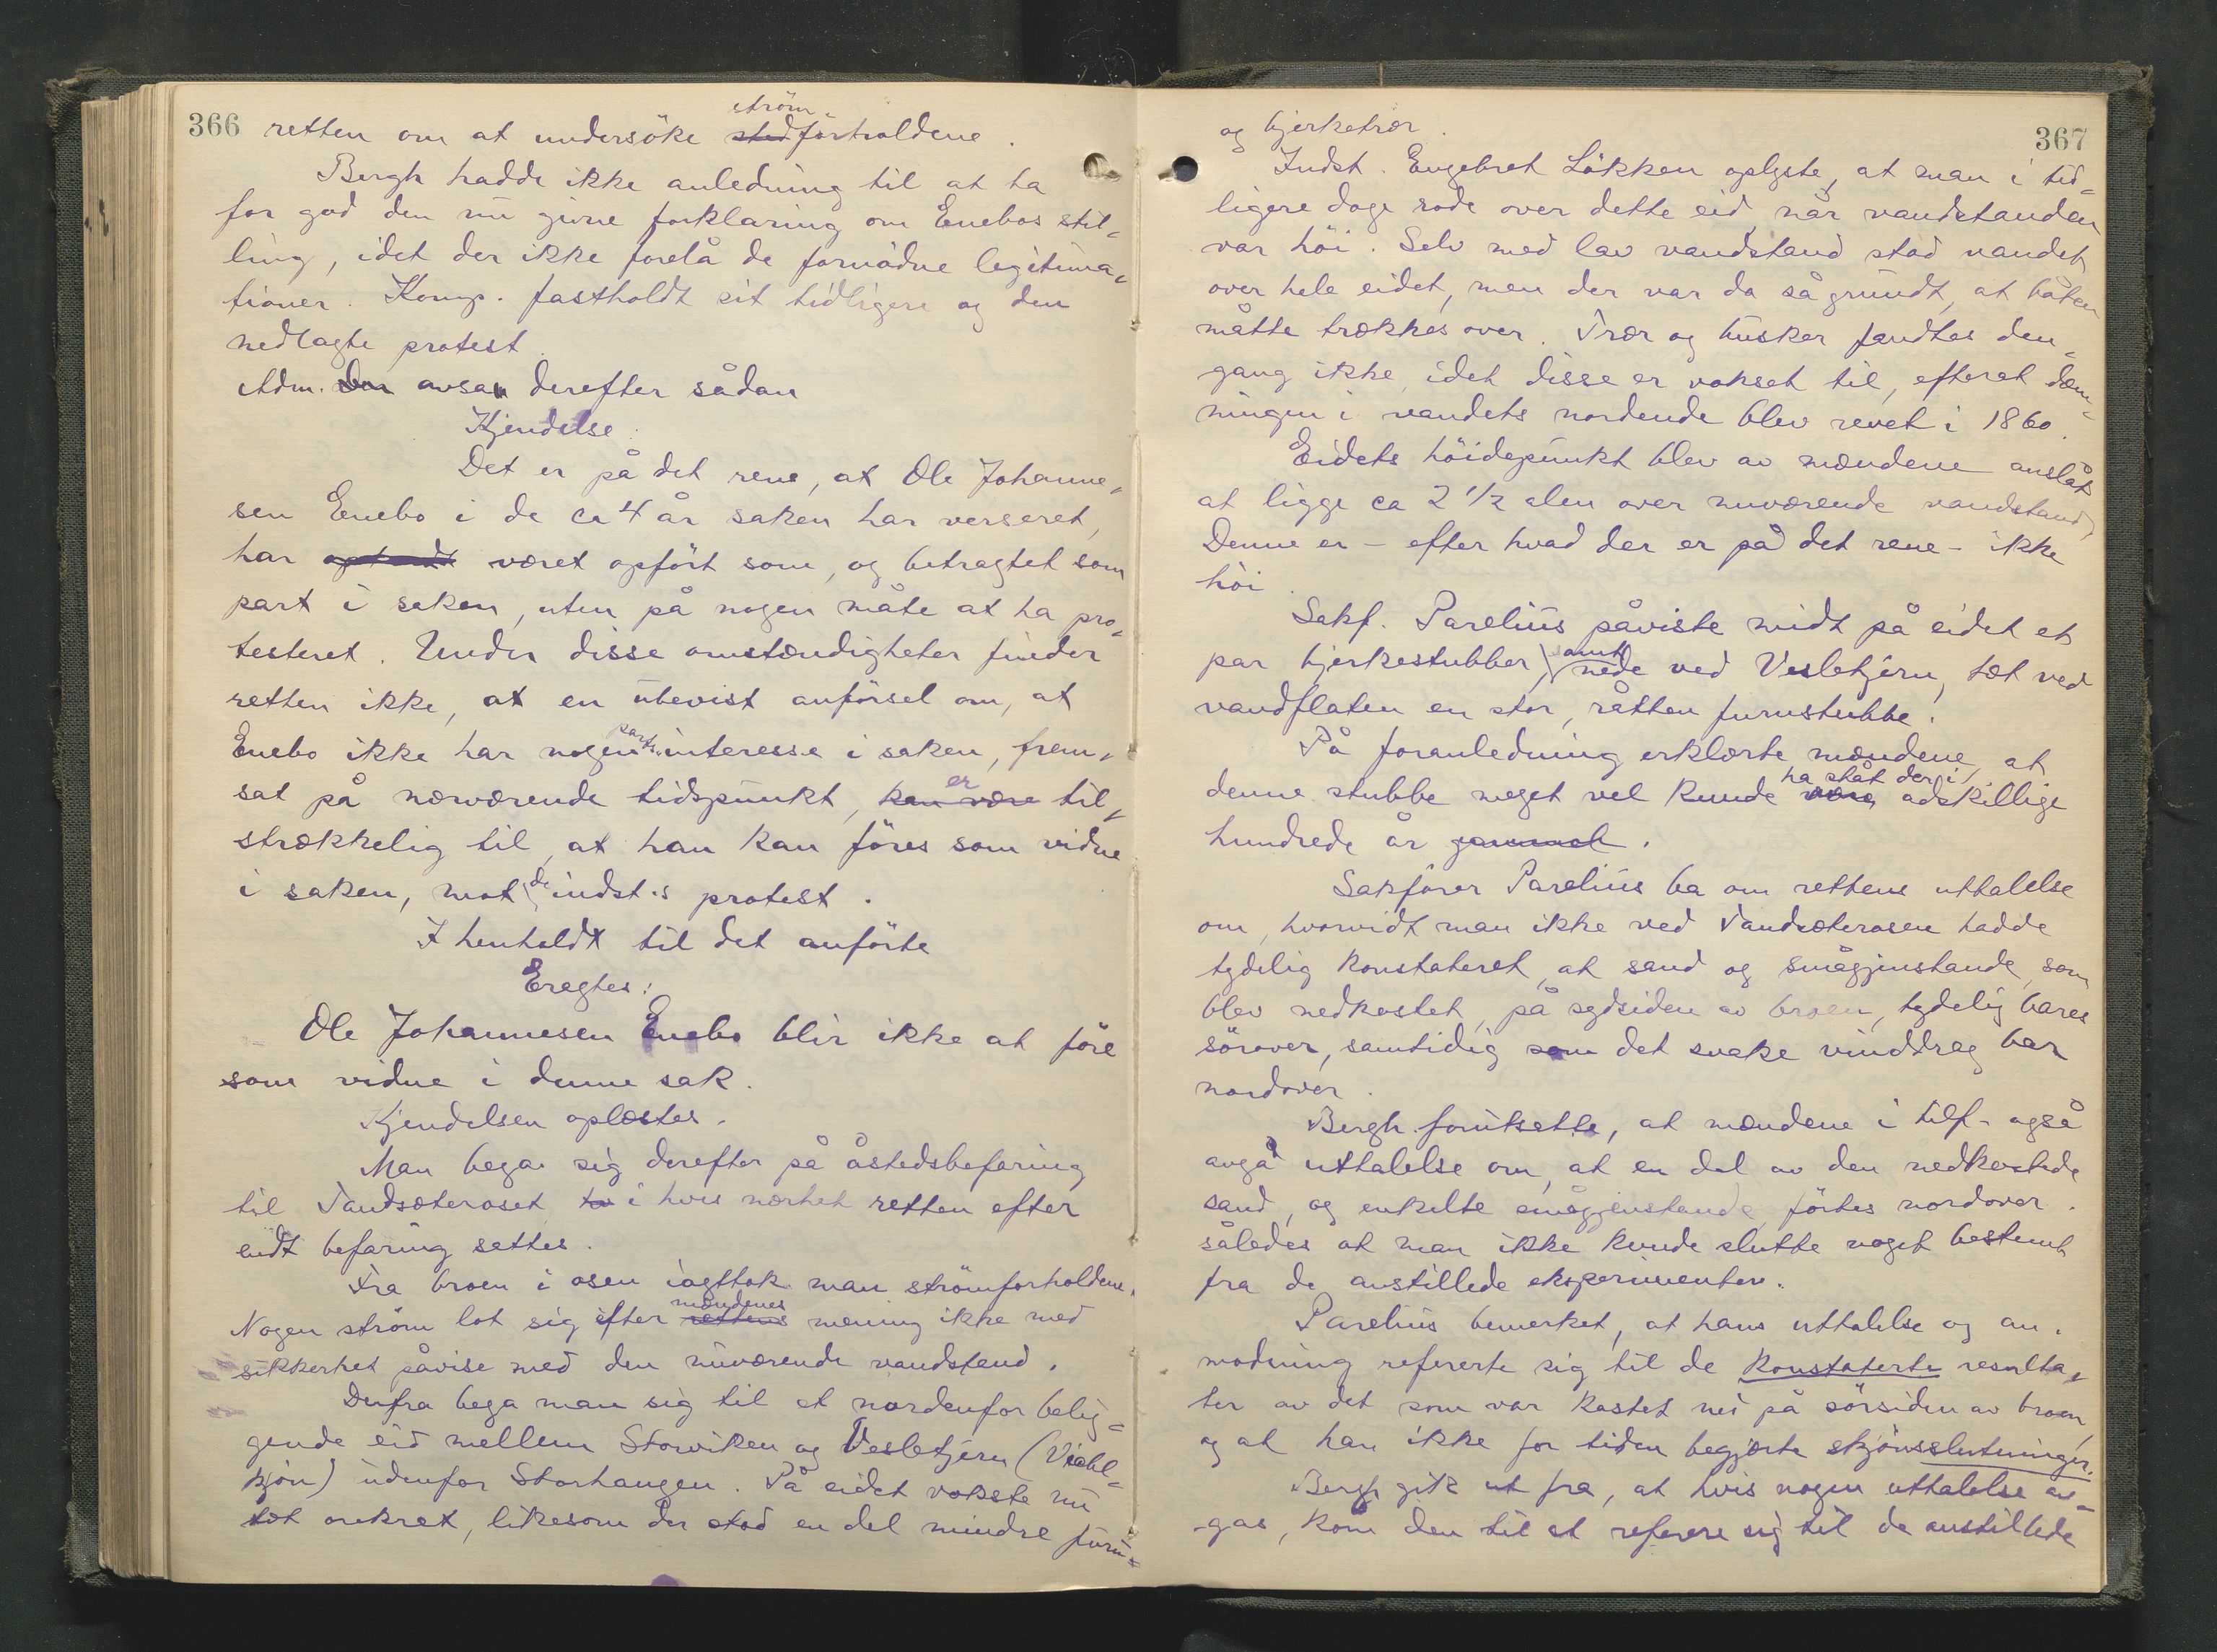 366 retten om at undersöke strömforholdene.
Bergh hadde ikke anledning til at ta
for god den nu givne forklaring om Enebos stil-
ling, idet der ikke forelå de fornödne legitima-
tioner. Komp. fastholdt sit tidligere og den
nedlagte protest.
Adm. avsa derefter sådan
Kjendelse:
Det er på det rene, at Ole Johanne-
sen Enebo i de ca 4 år saken har verseret,
har været opfört som, og betragtet som
part i saken, uten på nogen måte at ha pro-
testeret. Under disse omstændigheter finder
retten ikke, at en ubevist anförsel om, at
Enebo ikke har nogen parts interesse i saken, frem-
sat på nærværende tidspunkt, er til-
strækkelig til, at han kan föres som vidne
i saken, mot de indst.s protest.
I henholdt til det anförte
Eragtes:
Ole Johannesen Enebo blir ikke at före
som vidne i denne sak.
Kjendelsen oplæstes.
Man begav sig derefter på åstedsbefaring
til Tandsæteroset i hvis nærhet retten efter
endt befaring settes.
Fra broen i osen iagttok man strömforholdene.
Nogen ström lot sig efter mændenes mening ikke med
sikkerhet påvise med den nuværende vandstand.
Derfra bega man sig til et nordenfor belig-
gende eid mellem Storviken og Vesletjern (Viebl-
tjön) udenfor Storhaugen. På eidet vokste nu
tæt orekrat, likesom der stod en del mindre furu-
367
og bjerketrær.
Indst. Engebret Lökken oplyste, at man i tid-
ligere dage rode over dette eid, når vandstanden
var höi. Selv med lav vandstand stod vandet
over hele eidet, men der var da så grundt, at båten
måtte trækkes over. Trær og busker fandtes den-
gang ikke, idet disse er vokset til, efterat dæm-
ningen i vandets nordende blev revet i 1860.
Eidets höidepunkt blev av mændene anslåt
at ligge ca 2 1/2 alen over nuværende vandstand,
Denne er - efter hvad der er på det rene - ikke
höi.
Sakf. Parelius påviste midt på eidet et
par bjerkestubber, samt nede ved Vesletjern, tæt ved
vandflaten en stor, råtten furustubbe.
På foranledning erklærte mændene, at
denne stubbe meget vel kunde ha ståt der i adskillige
hundrede år.
Sakförer Parelius ba om rettens uttalelse
om, hvorvidt man ikke ved Tandsæterosen hadde
tydelig konstateret, at sand og smågjenstande, som
blev nedkastet, på sydsiden av broen, tydelig bares
sörover, samtidig som det svake vinddrag bar
nordover.
Bergh forutsatte, at mændene i tilf. også
avga uttalelse om, at en del av den nedkastede
sand, og enkelte smågjenstande, förtes nordover.
således at man ikke kunde slutte noget bestemt
fra de anstillede eksperimenter.
Parelius bemerket, at hans uttalelse og an-
modning refererte sig til de konstaterte resulta-
ter av det som var kastet ned på sörsiden av broen,
og at han ikke for tiden begjærte skjönsslutninger.
Bergh gik ut fra, at hvis nogen uttalelse av-
-gas, kom den til at referere sig til de anstillede